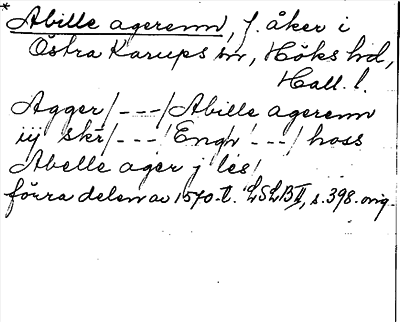 * Abille agerenn, f. åker i
Östra Karups sn, Höks hd,
Hall. l.
Agger /---/ Abille agerenn
iij skr̄ /---/ Engh /---/ hoss
Abelle ager j les/
förra delen av 1570-t. LSLB II, s. 398. orig.